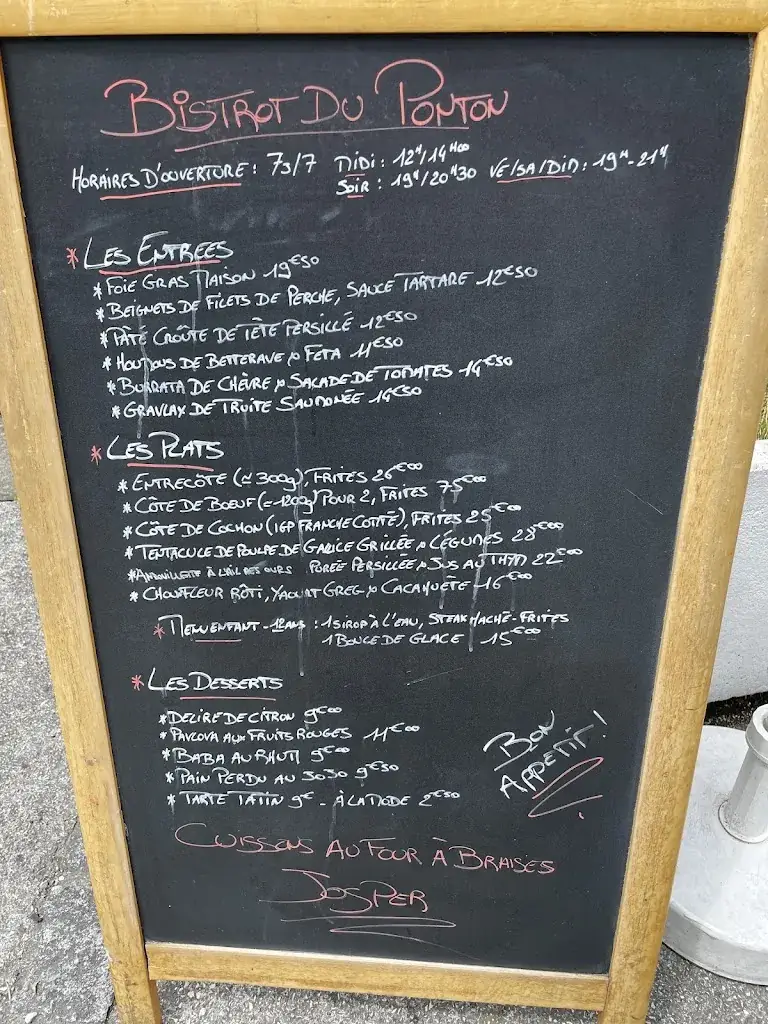 BISTROT DU PONTON
HORAIRES D'OUVERTURE : 7J/7 MIDI : 12H/14H00
SOIR : 19H/20H30 VE/SA/DIM : 19H-21H
* LES ENTREES
* FOIE GRAS MAISON 19€50
* BEIGNETS DE FILETS DE PERCHE, SAUCE TARTARE 12€50
* PÂTÉ CROÛTE DE TÊTE PERSILLÉ 12€50
* HOUMOUS DE BETTERAVE & FETA 11€50
* BURRATA DE CHÈVRE & SALADE DE TOMATES 14€50
* GRAVLAX DE TRUITE SAUMONÉE 14€50
* LES PLATS
* ENTRECÔTE (≃300g), FRITES 26€00
* CÔTE DE BOEUF (≃1200g) POUR 2, FRITES 75€00
* CÔTE DE COCHON (IGP FRANCHE COMTÉ), FRITES 25€00
* TENTACULE DE POULPE DE GALICE GRILLÉE & LÉGUMES 28€00
* ANDOUILLETTE À L'AIL DES OURS PURÉE PERSILLÉE & JUS AU THYM 22€00
* CHOUFLEUR RÔTI, YAOURT GREC & CACAHUÈTE 16€00
* MENU ENFANT -12ANS : 1 SIROP À L'EAU, STEAK HACHÉ-FRITES
1 BOULE DE GLACE 15€00
* LES DESSERTS
* DELIRE DE CITRON 9€00
* PAVLOVA AUX FRUITS ROUGES 11€00
* BABA AU RHUM 9€00
* PAIN PERDU AU JOJO 9€50
* TARTE TATIN 9€ - À LA MODE 2€50
BON
APPETIT !
CUISSONS AU FOUR À BRAISES
JOSPER